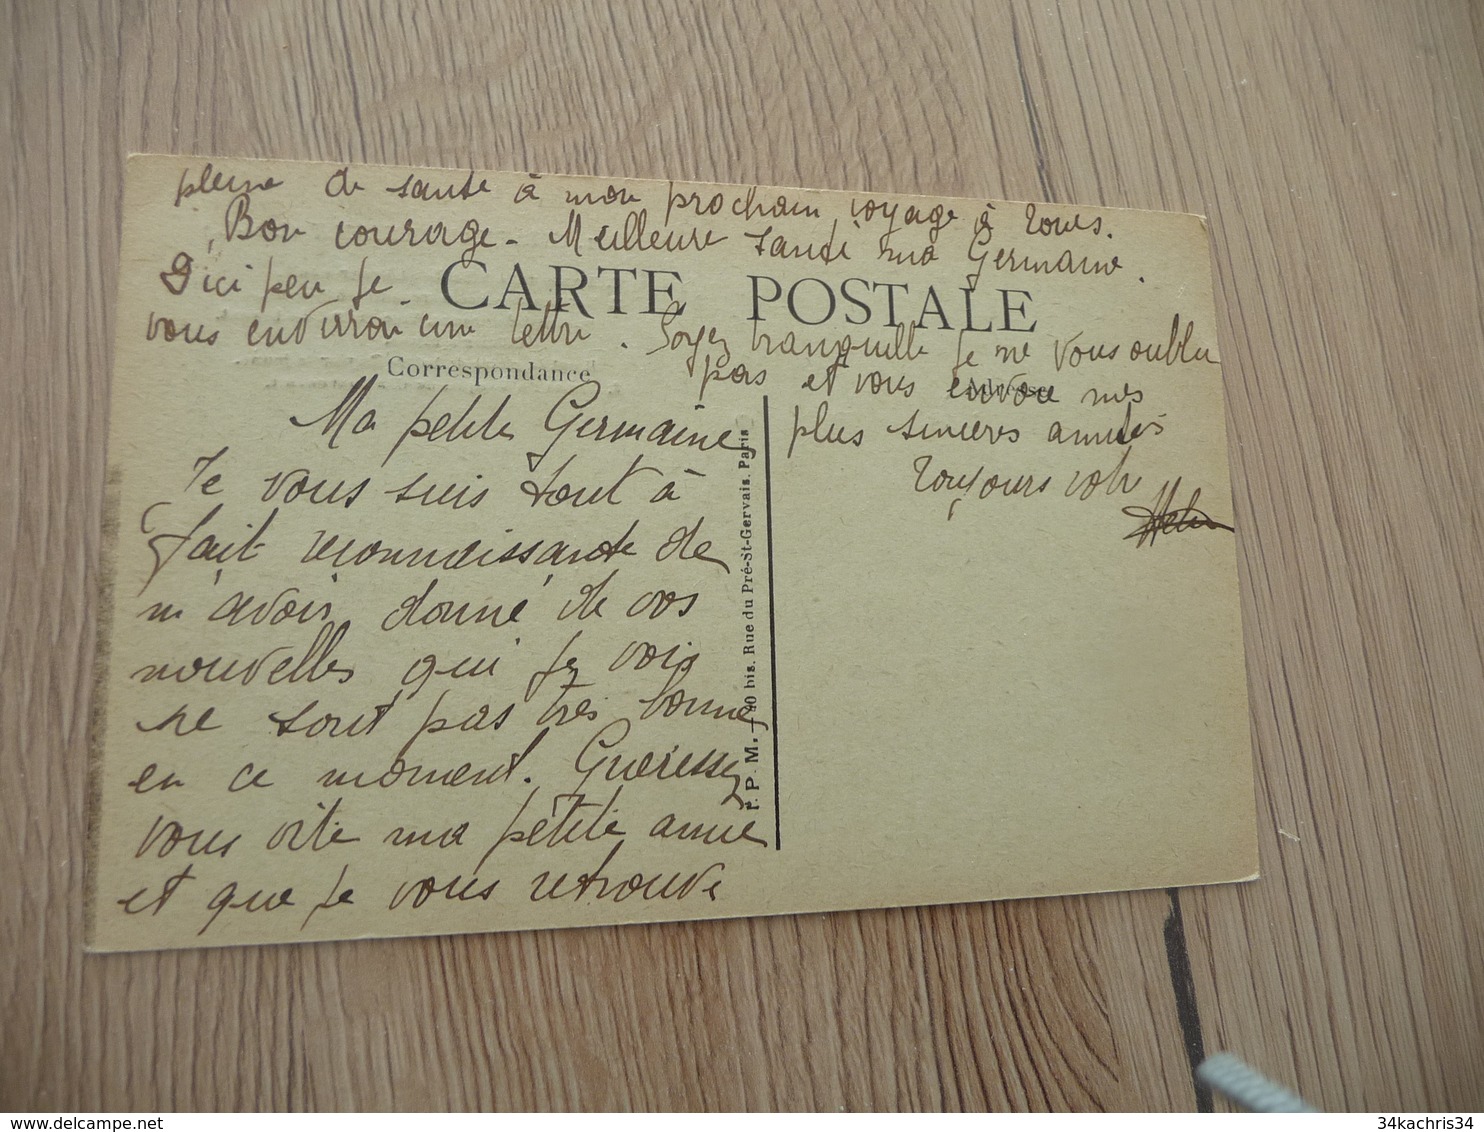 Ma petite Germaine,
Je vous suis tout à
fait reconnaissante de
m'avoir donné de vos
nouvelles qui je vois
ne sont pas très bonne
en ce moment. Guerissez
vous vite ma petite amie
et que je vous retrouve
pleine de santé à mon prochain voyage à Tours.
Bon courage - Meilleure santé ma Germaine.
D'ici peu je
vous enverron une lettre. Soyez tranquille je ne vous oublie
pas et vous envoie mes
plus sincères amitiés
Toujours votre
CARTE POSTALE
Correspondance
Adresse
I. P. M. - 40 bis. Rue du Pré-St-Gervais. Paris
34kachris34